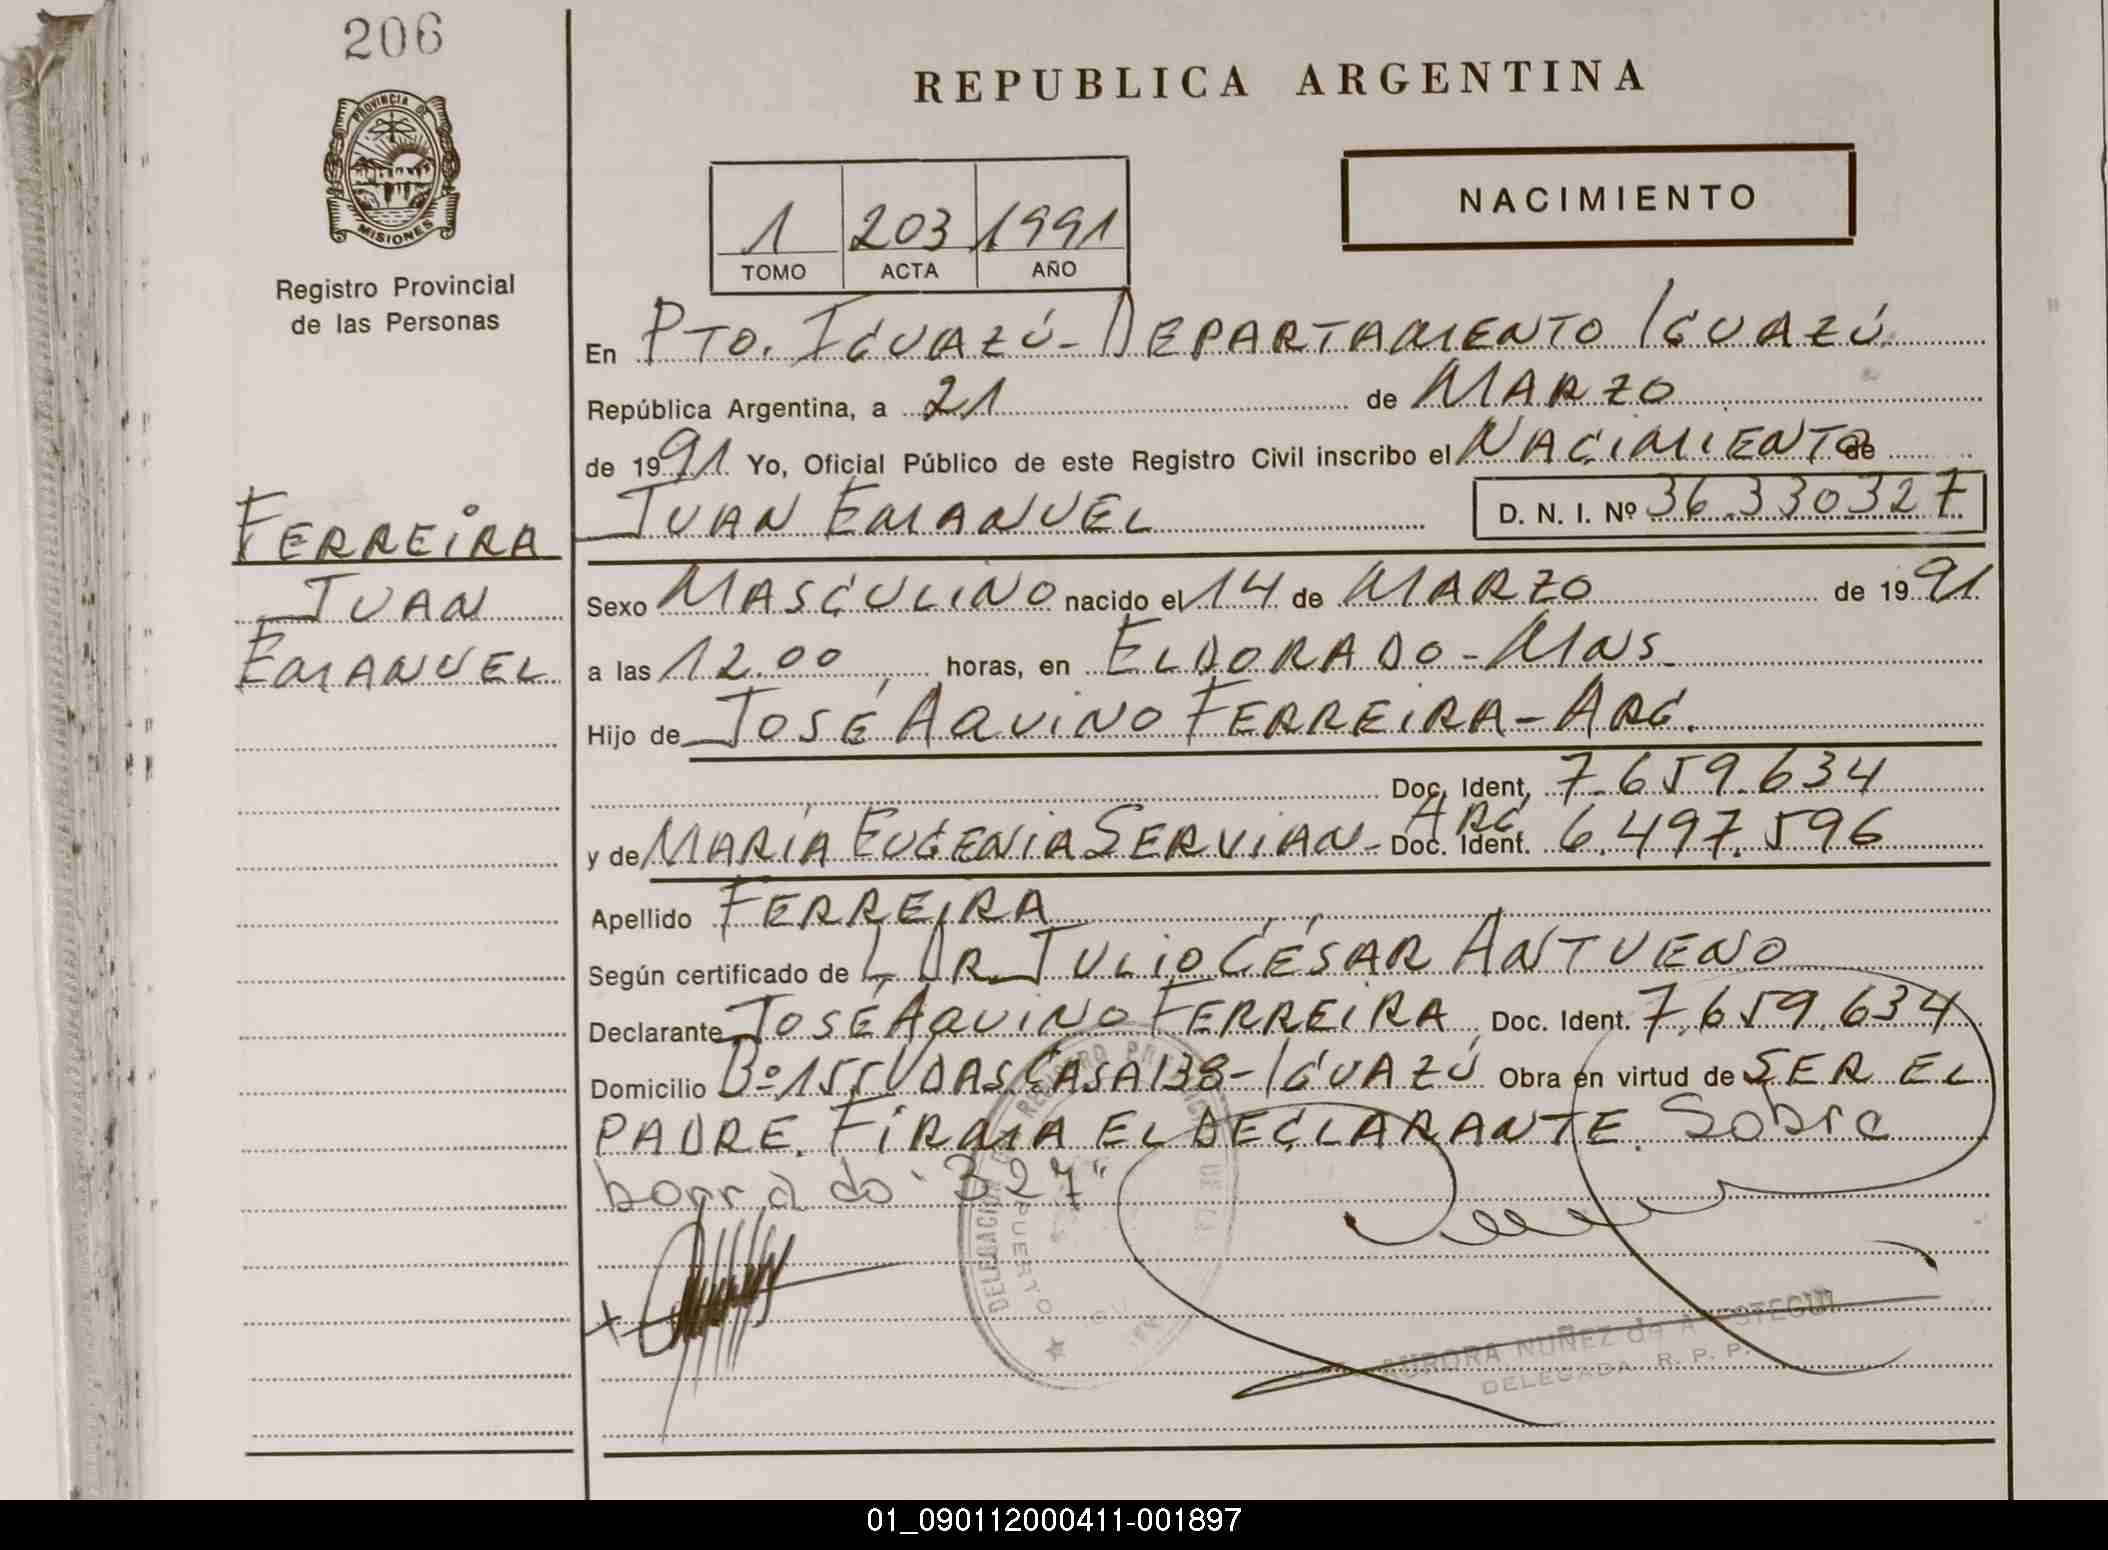 206
PROVINCIA DE
MISIONES
Registro Provincial
de las Personas
REPUBLICA ARGENTINA
NACIMIENTO
1 203 1991
TOMO ACTA AÑO
En PTO. IGUAZÚ - DEPARTAMENTO IGUAZÚ
República Argentina, a 21 de MARZO
de 1991 Yo, Oficial Público de este Registro Civil inscribo el NACIMIENTO de
JUAN EMANUEL D. N. I. Nº 36.330327
FERREIRA
JUAN
EMANUEL
Sexo MASCULINO nacido el 14 de MARZO de 1991
a las 12.00 horas, en ELDORADO - MNS.
Hijo de JOSÉ AQUINO FERREIRA - ARG.
Doc. Ident. 7.659.634
y de MARÍA EUGENIA SERVIAN - ARG Doc. Ident. 6.497.596
Apellido FERREIRA
Según certificado de L DR JULIO CÉSAR ANTUENO
Declarante JOSÉ AQUINO FERREIRA Doc. Ident. 7.659.634
Domicilio Bº 155 VDAS CASA 138 - IGUAZÚ Obra en virtud de SER EL
PADRE. FIRMA EL DECLARANTE. Sobre
borrado "327"
DELEGACION REGISTRO PROVINCIAL DE LAS
PUERTO IGU
AURORA NUÑEZ de
DELEGADA R. P. P.
01_090112000411-001897